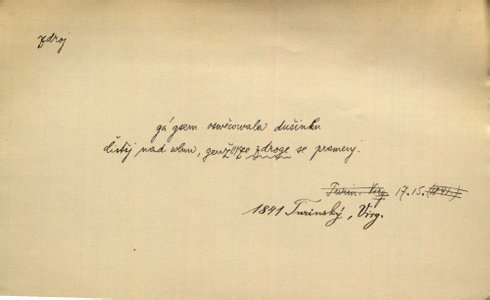 zdroj
gá gsem oswěcowala dušinku
čistěj nad wlnu, genž ze zdroge se prameny.
Turin. Virg. 17.15. (1841.)
1841 Turinský, Virg.